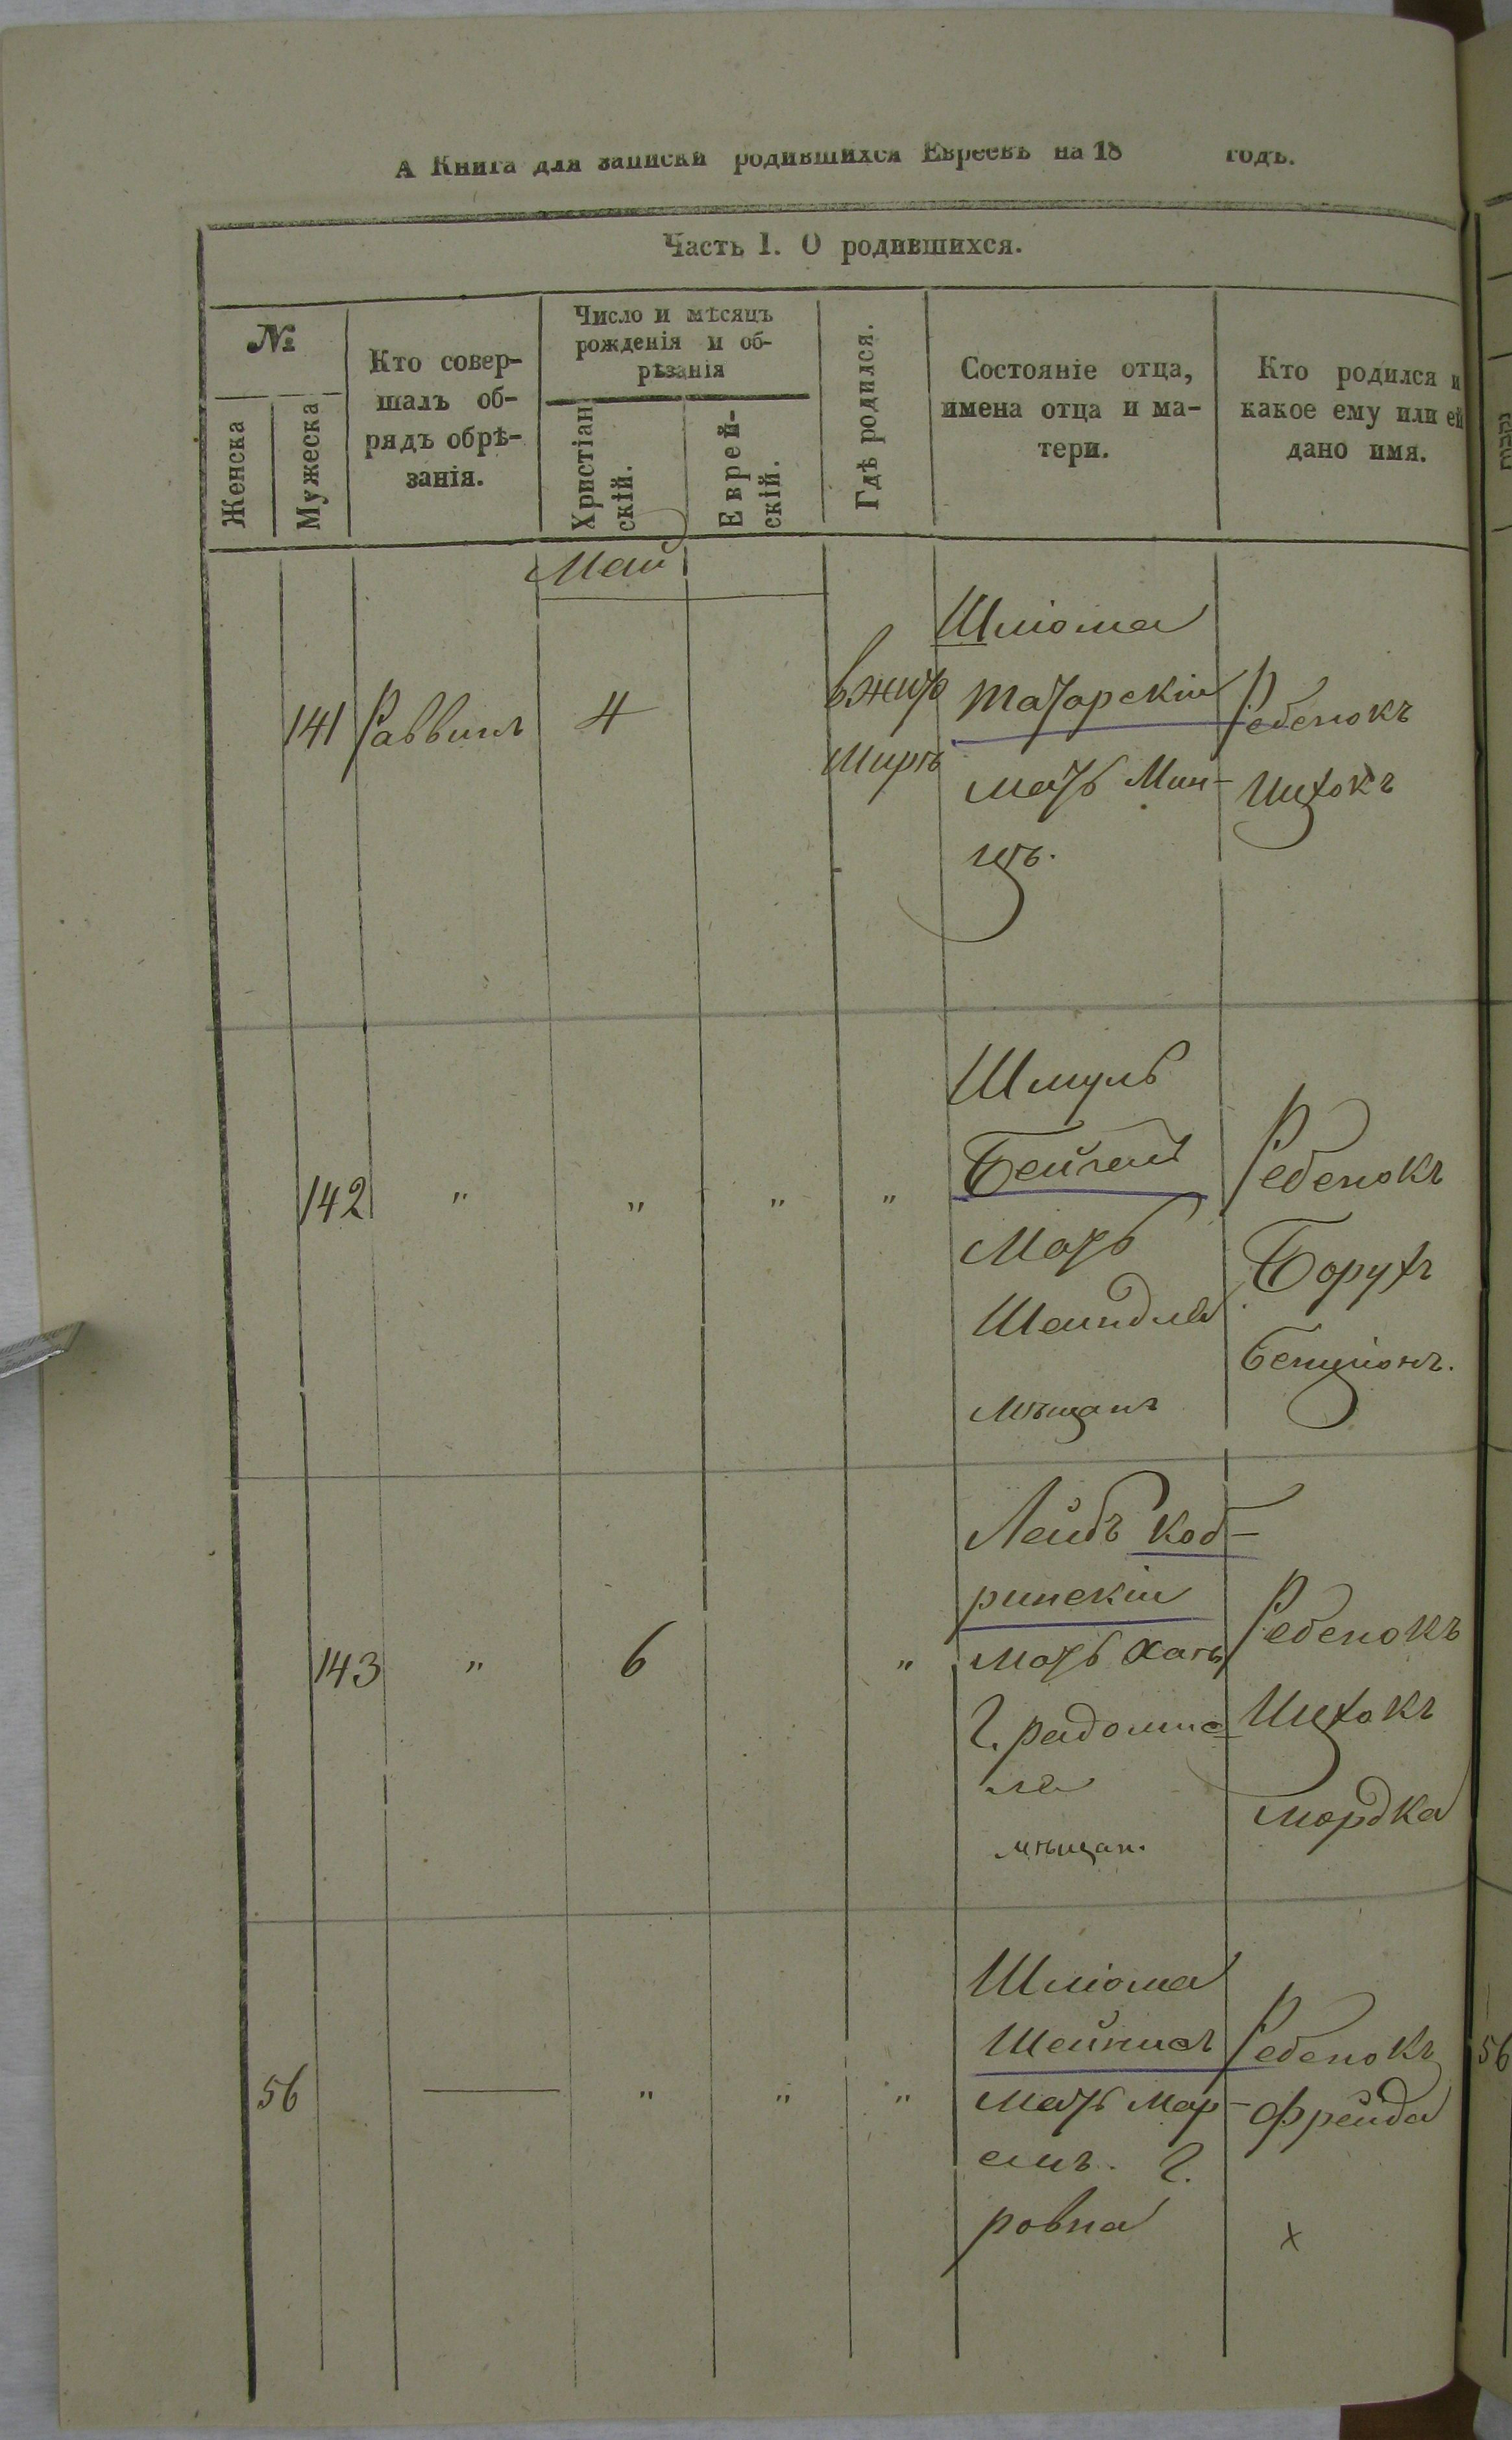 А Книга для записки родившихся Евреевъ на 18 годъ.
Часть I. О родившихся.
№
Женска
Мужеска
Кто совер-
шалъ об-
рядъ обрѣ-
занія.
Число и мѣсяцъ
рожденія и об-
рѣзанія
Христіан
скій.
Еврей-
скій.
Гдѣ родился.
Состояніе отца,
имена отца и ма-
тери.
Кто родился и
какое ему или ей
дано имя.
Май
141
Раввинъ
4
вжито
мирѣ
Шліома
татарскій
мать Мин-
цѣ.
Ребенокъ
Ицхокъ
142
"
"
"
"
Шмуль
Бейгель
Мать
Шейндля
мѣщанъ
Ребенокъ
Борухъ
Бенціонъ.
143
"
6
"
Лейбъ Коб-
ринскій
мать Хань
г. радомис-
ля
мѣщан.
Ребенокъ
Ицхокъ
мордка
56
"
"
"
Шліома
Шейнисъ
мать Мар-
емъ. г.
ровна
Ребенокъ
Фрейда
х
56